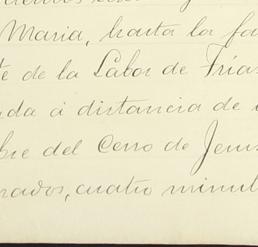 Maria, hasta la
te de la Labor de Frias
da á distancia de
bre del Cerro de
rados, cuatro minut